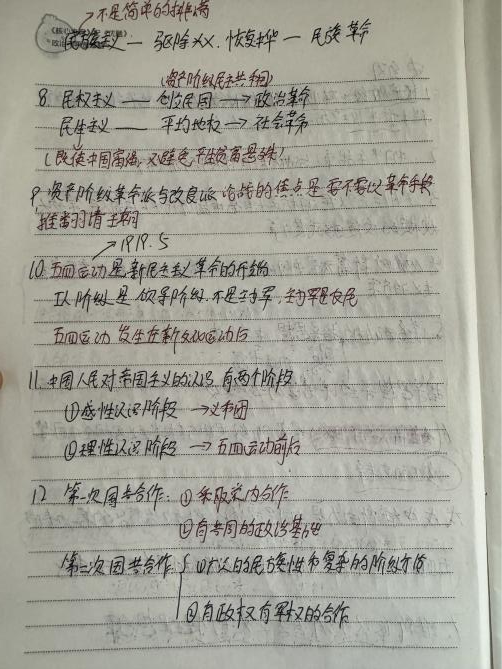 不是简单的排满
民族主义 — 驱除xx.恢复中华 — 民族革命
(资产阶级民主共和国)
8. 民权主义 — 创立民国 → 政治革命
民生主义 — 平均地权 → 社会革命
(既使中国富强,又避免产生贫富悬殊)
9. 资产阶级革命派与改良派论战的焦点是要不要以革命手段
推翻清王朝
1919.5
10. 五四运动是新民主主义革命的开始
工人阶级是领导阶级.不是主力军,主力军是农民
五四运动发生在新文化运动后
11. 中国人民对帝国主义的认识有两个阶段
①感性认识阶段 → 义和团
②理性认识阶段 → 五四运动前后
12 第一次国共合作:①采取党内合作
②有共同的政治基础
第二次国共合作: ①广泛的民族性和复杂的阶级
②有政权有军权的合作